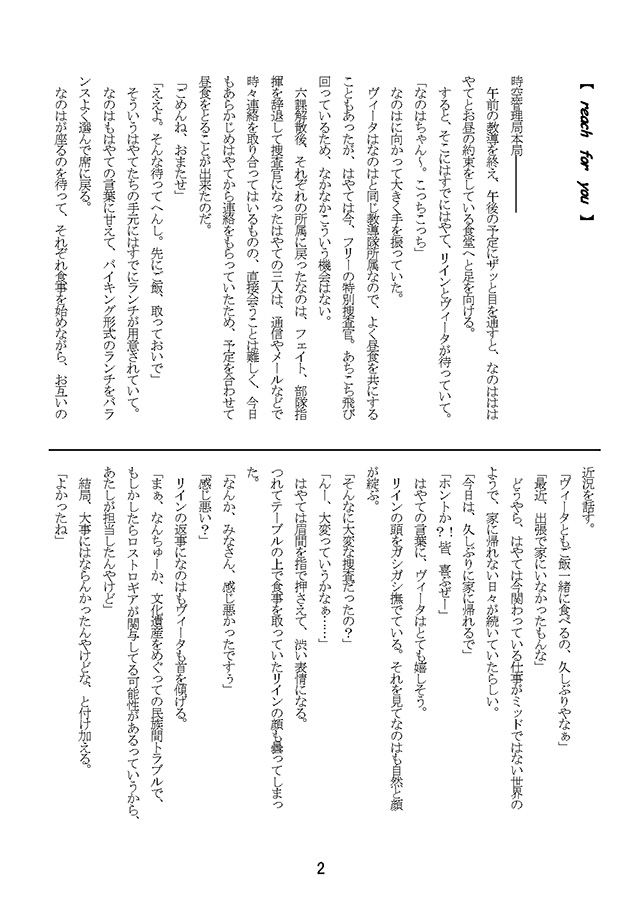 【 reach for you 】
時空管理局本局――――
午前の教導を終え、午後の予定にザッと目を通すと、なのははは
やてとお昼の約束をしている食堂へと足を向ける。
すると、そこにはすでにはやて、リインとヴィータが待っていて。
「なのはちゃん～。こっちこっち」
なのはに向かって大きく手を振っていた。
ヴィータはなのはと同じ教導隊所属なので、よく昼食を共にする
こともあったが、はやては今、フリーの特別捜査官。あちこち飛び
回っているため、なかなかこういう機会はない。
六課解散後、それぞれの所属に戻ったなのは、フェイト、部隊指
揮を辞退して捜査官になったはやての三人は、通信やメールなどで
時々連絡を取り合ってはいるものの、直接会うことは難しく、今日
もあらかじめはやてから連絡をもらっていたため、予定を合わせて
昼食をとることが出来たのだ。
「ごめんね、おまたせ」
「ええよ。そんな待ってへんし。先にご飯、取っておいで」
そういうはやてたちの手元にはすでにランチが用意されていて。
なのはもはやての言葉に甘えて、バイキング形式のランチをバラ
ンスよく選んで席に戻る。
なのはが座るのを待って、それぞれ食事を始めながら、お互いの
近況を話す。
「ヴィータともご飯一緒に食べるの、久しぶりやなぁ」
「最近、出張で家にいなかったもんな」
どうやら、はやては今関わっている仕事がミッドではない世界の
ようで、家に帰れない日々が続いていたらしい。
「今日は、久しぶりに家に帰れるで」
「ホントか？！皆、喜ぶぜー」
はやての言葉に、ヴィータはとても嬉しそう。
リインの頭をガシガシ撫でている。それを見てなのはも自然と顔
が綻ぶ。
「そんなに大変な捜査だったの？」
「んー、大変っていうかなぁ……」
はやては眉間を指で押さえて、渋い表情になる。
つれてテーブルの上で食事を取っていたリインの顔も曇ってしまっ
た。
「なんか、みなさん、感じ悪かったですぅ」
「感じ悪い？」
リインの返事になのはもヴィータも首を傾げる。
「まぁ、なんちゅーか、文化遺産をめぐっての民族間トラブルで、
もしかしたらロストロギアが関与してる可能性があるっていうから、
あたしが担当したんやけど」
結局、大事にはならんかったんやけどな、と付け加える。
「よかったね」
2